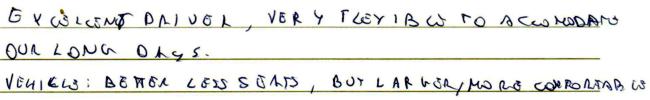 EXCELLENT DRIVER, VERY FLEXIBLE TO ACCOMODATE
OUR LONG DAYS.
VEHICLE: BETTER LESS SEATS, BUT LARGER/MORE COMFORTABLE